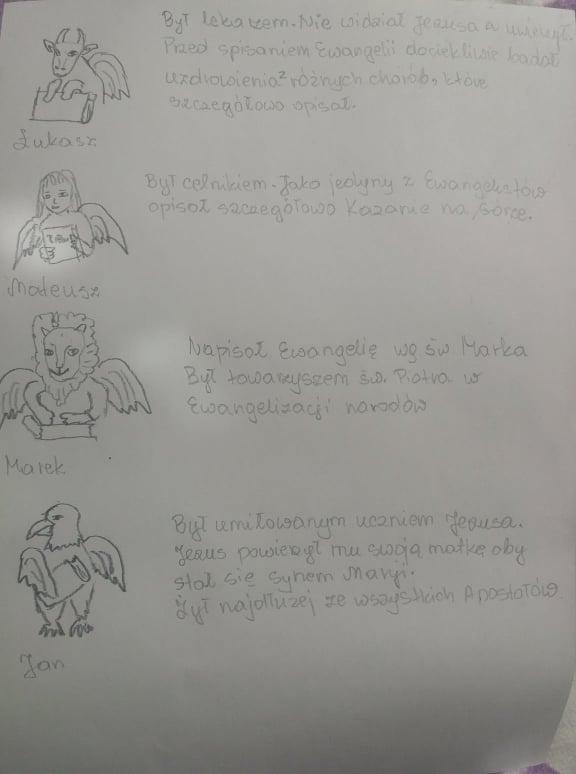 Był lekarzem. Nie widział Jezusa a uwierzył.
Przed spisaniem Ewangelii dociekliwie badał
uzdrowienia z różnych chorób, które
szczegółowo opisał.
Łukasz
Był celnikiem. Jako jedyny z Ewangelistów
opisał szczegółowo Kazanie na Górce.
Mateusz
Napisał Ewangelię wg św Marka
Był towarzyszem św. Piotra w
Ewangelizacji narodów
Marek
Był umiłowanym uczniem Jezusa.
Jezus powierzył mu swoją matkę aby
stał się synem Maryji.
Żył najdłużej ze wszystkich Apostołów.
Jan